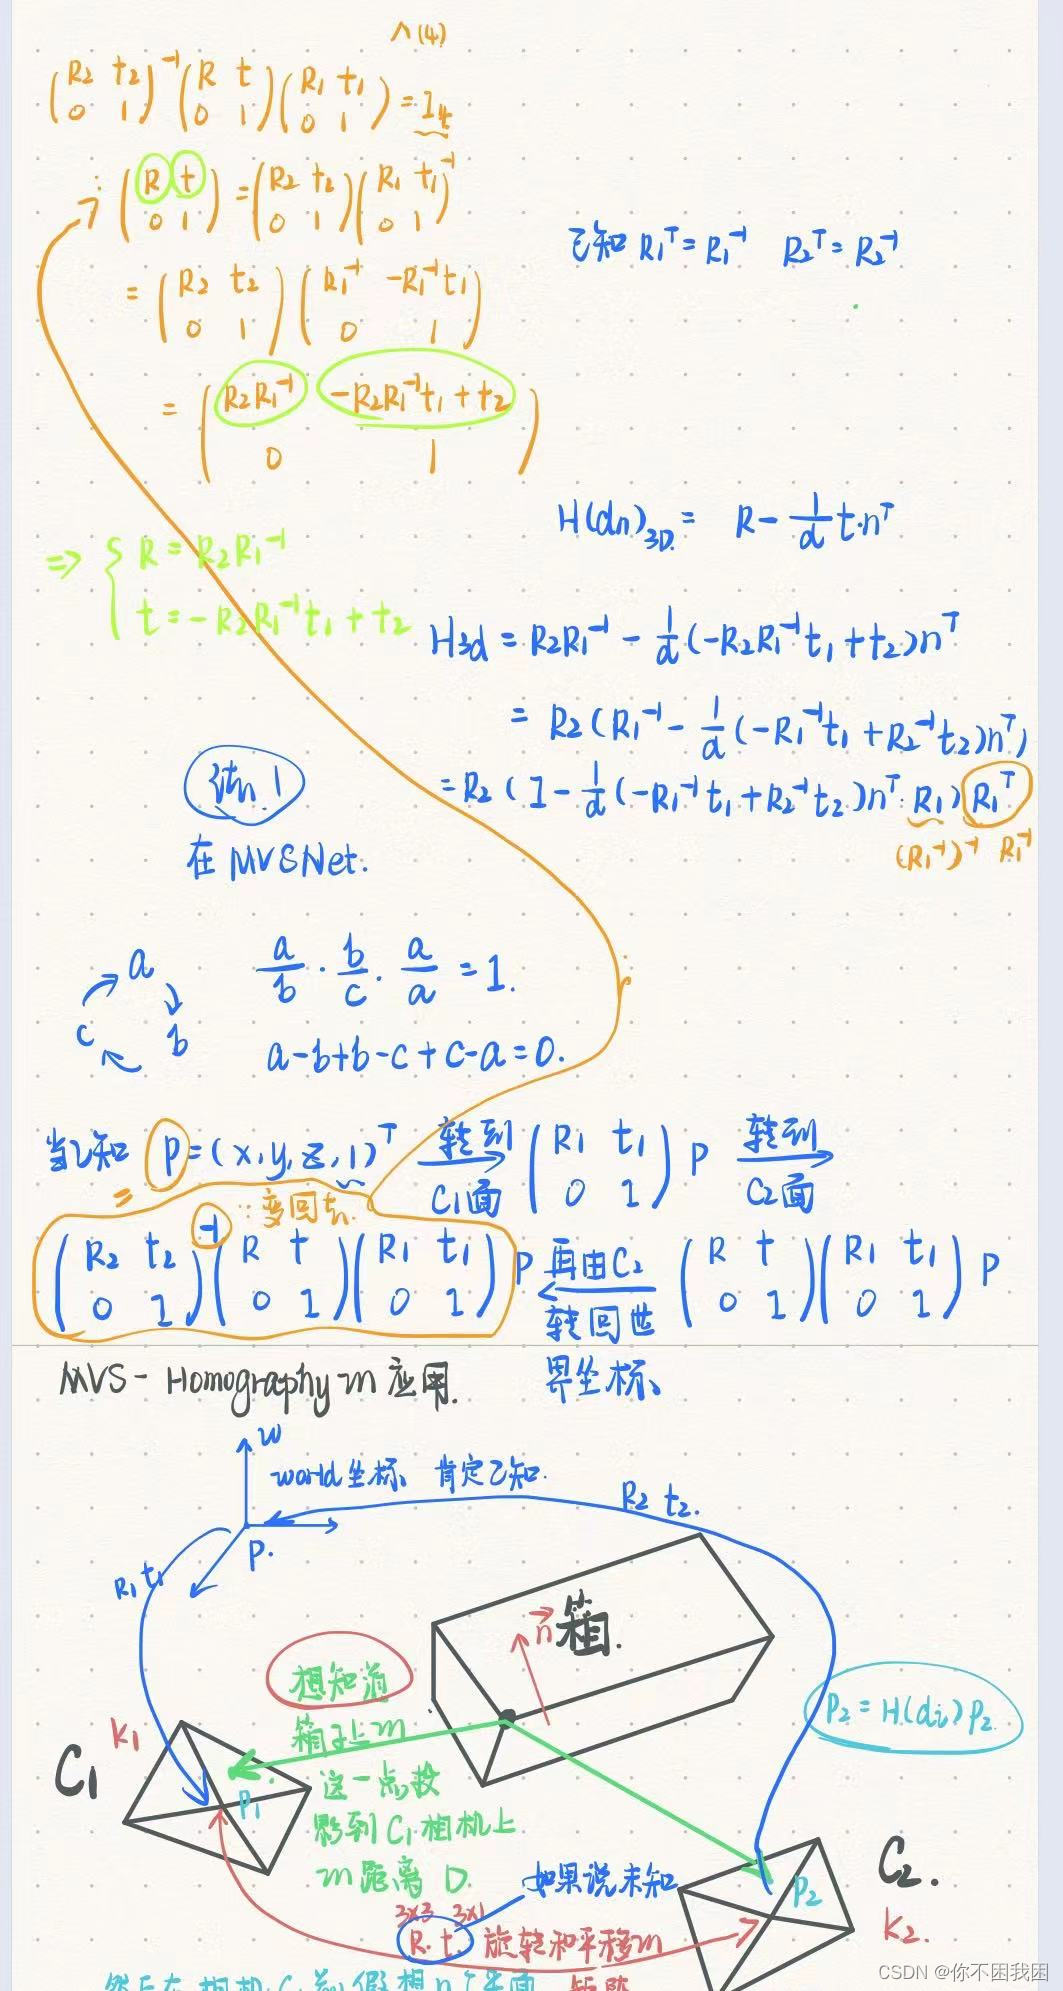 ∧(4)
(R2 t2 0 1)⁻¹ (R t 0 1) (R1 t1 0 1) = I4
∴ (R t 0 1) = (R2 t2 0 1) (R1 t1 0 1)⁻¹
已知 R1ᵀ = R1⁻¹ R2ᵀ = R2⁻¹
= (R2 t2 0 1) (R1⁻¹ -R1⁻¹t1 0 1)
= (R2R1⁻¹ -R2R1⁻¹t1 + t2 0 1)
H(dn)3D = R - 1/d t·nᵀ
=> { R = R2R1⁻¹
t = -R2R1⁻¹t1 + t2
H3d = R2R1⁻¹ - 1/d (-R2R1⁻¹t1 + t2)nᵀ
= R2 (R1⁻¹ - 1/d (-R1⁻¹t1 + R2⁻¹t2)nᵀ)
= R2 (I - 1/d (-R1⁻¹t1 + R2⁻¹t2)nᵀ·R1) R1ᵀ
(R1⁻¹)⁻¹ R1⁻¹
在 MVSNet.
a b c
a/b · b/c · a/a = 1.
a-b+b-c+c-a=0.
当已知 P=(x,y,z,1)ᵀ 转到 C1面 (R1 t1 0 1) P 转到 C2面
∵变回
(R2 t2 0 1)⁻¹ (R t 0 1) (R1 t1 0 1) P 再由C2 转回世 (R t 0 1) (R1 t1 0 1) P
界坐标
MVS - Homography m 应用.
w
world坐标、肯定已知.
R2 t2.
P.
R1 t1
n 箱.
想知道
箱子上m
这一点投
影到C1相机上
m距离 D
K1
C1
P1
P2 = H(di) P2
如果说未知
C2.
P2
K2.
3x3 3x1
R. t. 旋转和平移m
矩阵
CSDN @你不困我困